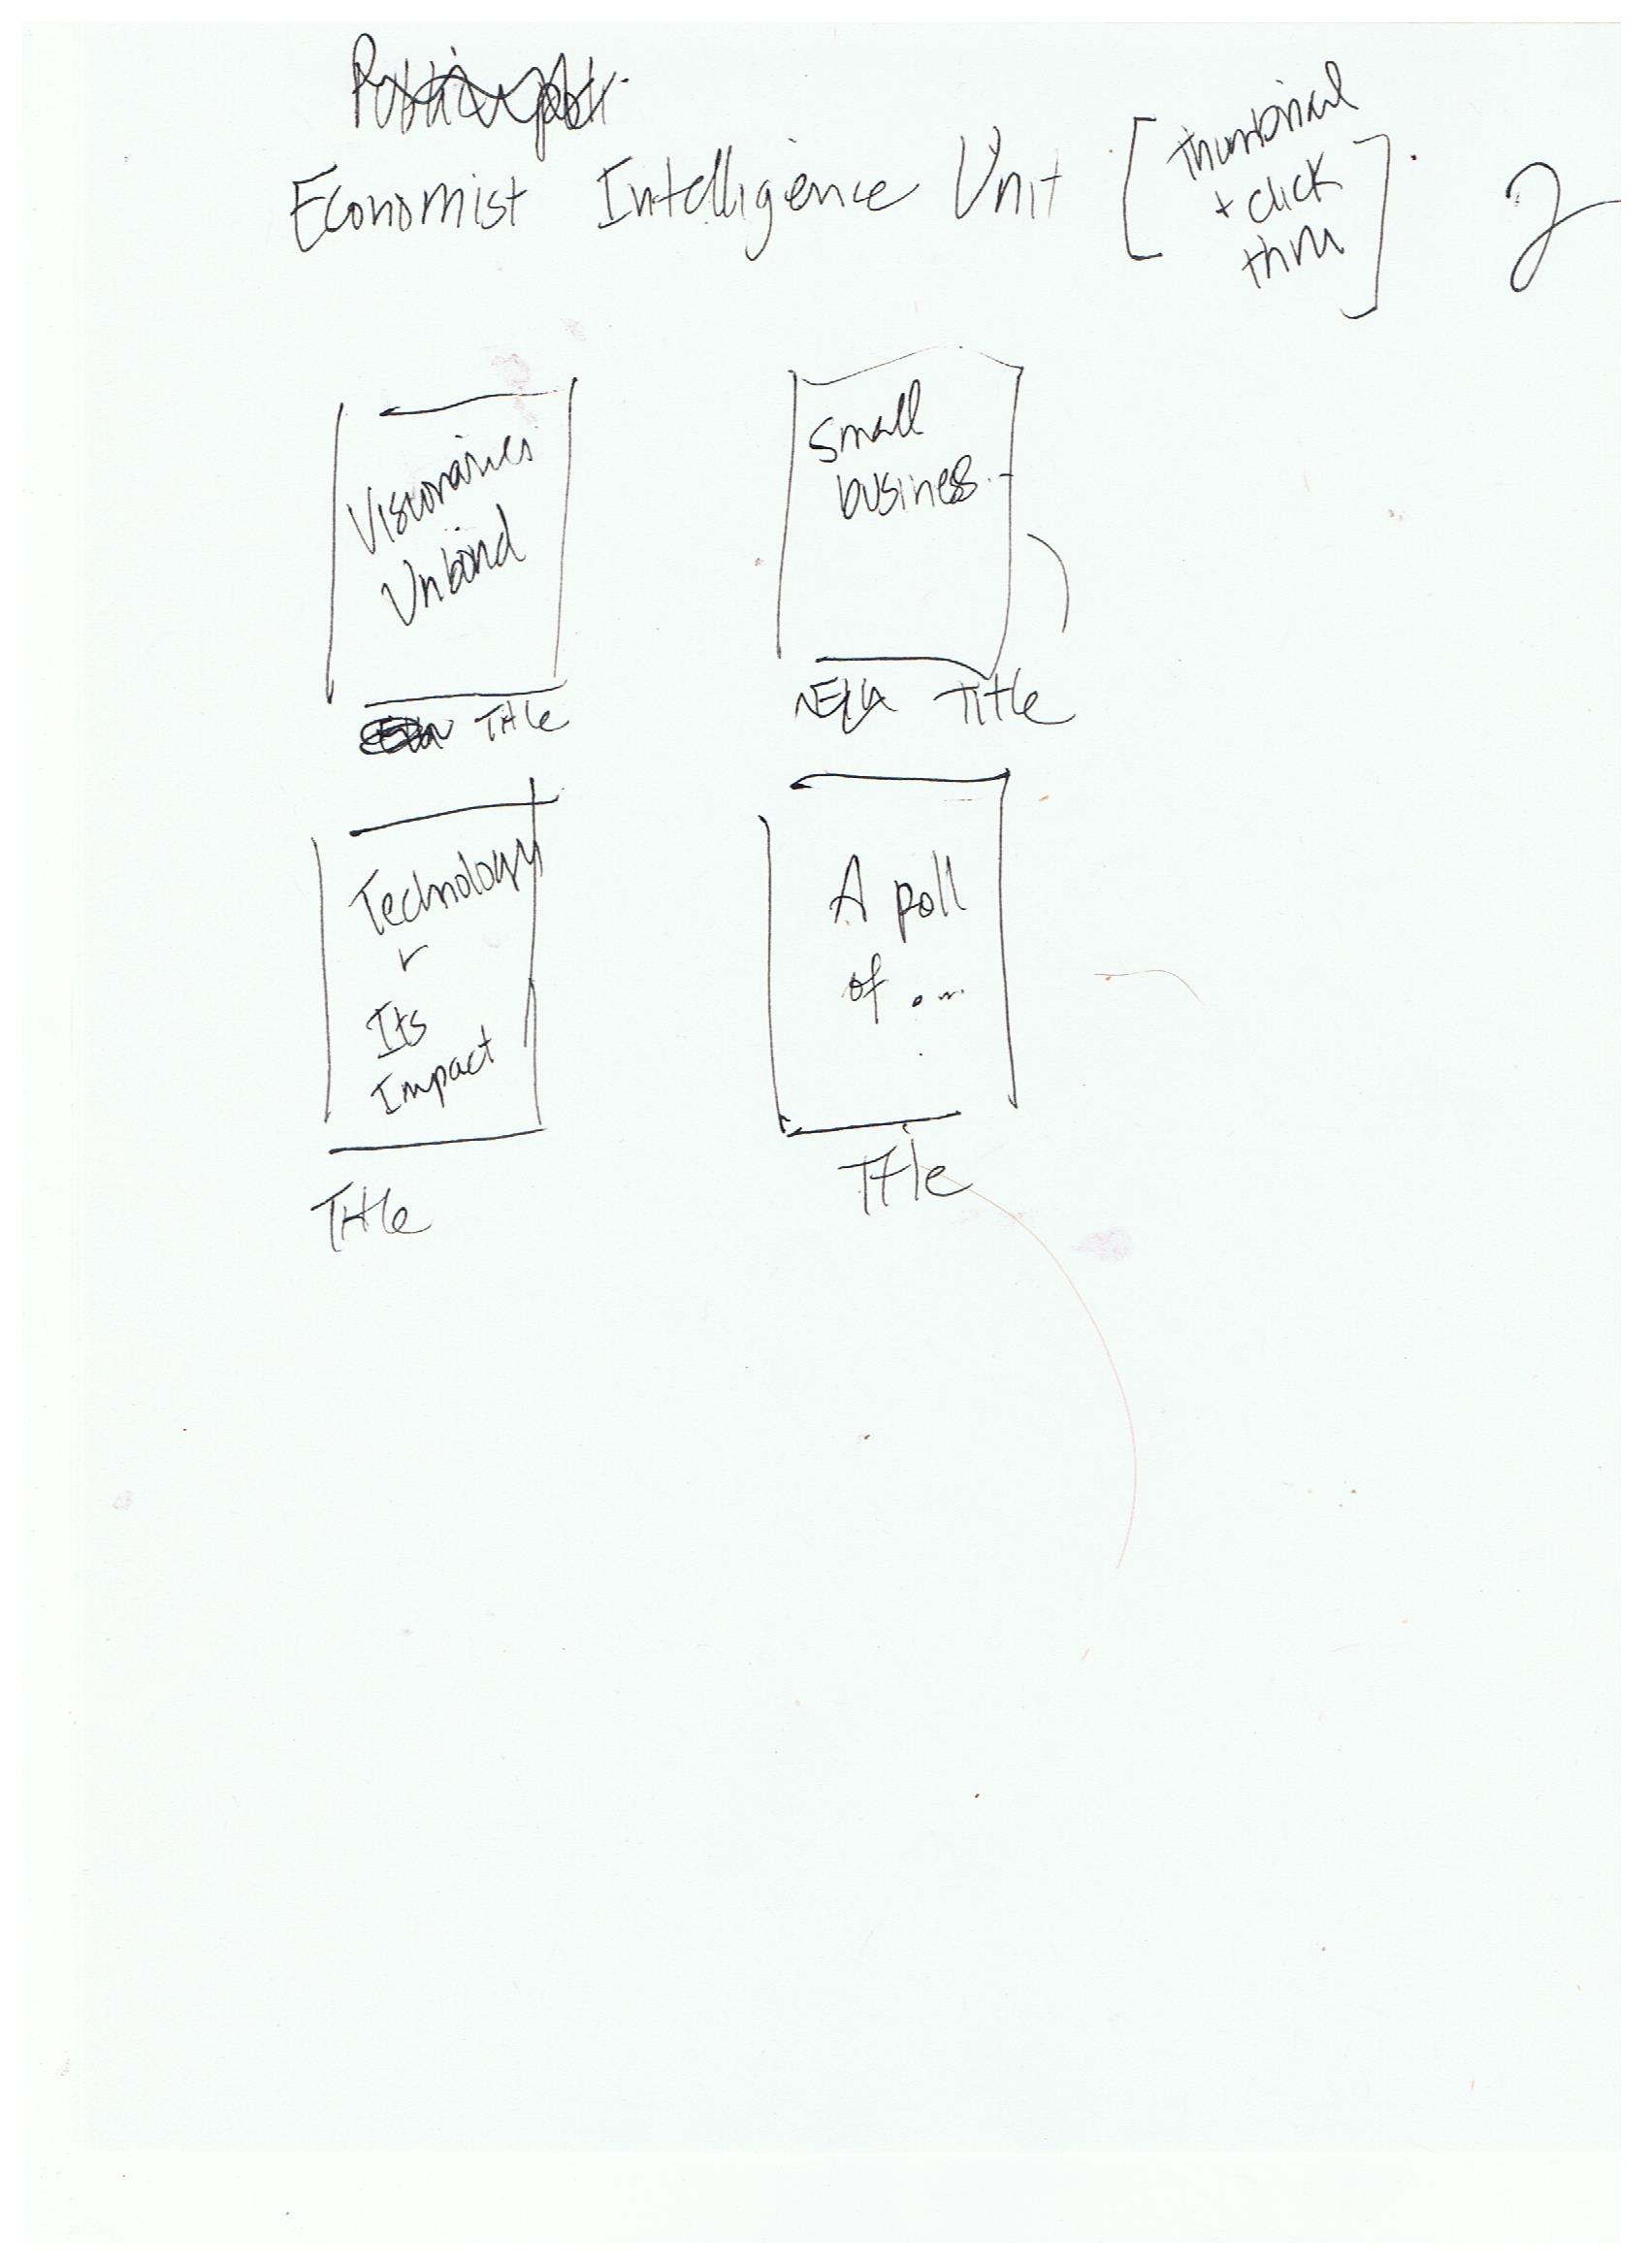 Economist Intelligence Unit [thumbnail
+ click
thru]
2
Visionaries
Unbond
Title
Small
business..
Title
Technology
&
Its
Impact
Title
A poll
of ...
Title